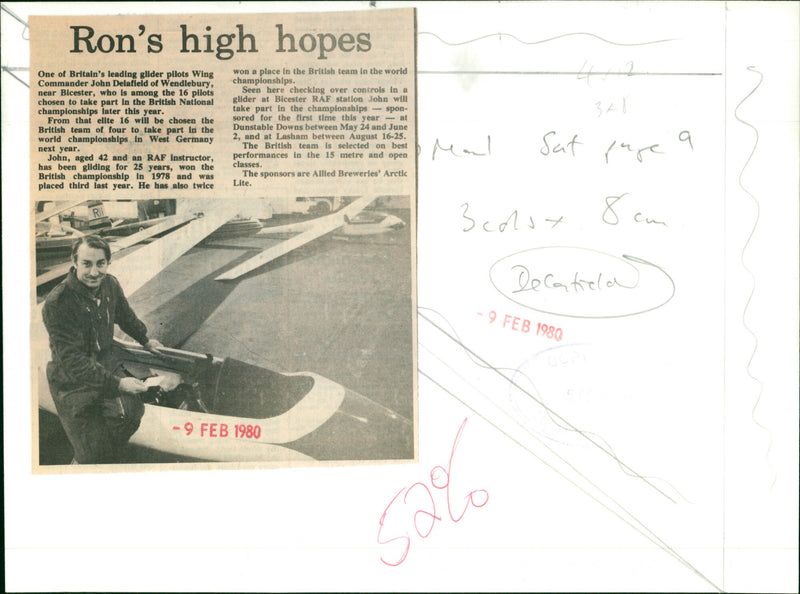 Ron's high hopes
One of Britain's leading glider pilots Wing
Commander John Delafield of Wendlebury,
near Bicester, who is among the 16 pilots
chosen to take part in the British National
championships later this year.
From that elite 16 will be chosen the
British team of four to take part in the
world championships in West Germany
next year.
John, aged 42 and an RAF instructor,
has been gliding for 25 years, won the
British championship in 1978 and was
placed third last year. He has also twice
won a place in the British team in the world
championships.
Seen here checking over controls in a
glider at Bicester RAF station John will
take part in the championships — spon-
sored for the first time this year — at
Dunstable Downs between May 24 and June
2, and at Lasham between August 16-25.
The British team is selected on best
performances in the 15 metre and open
classes.
The sponsors are Allied Breweries' Arctic
Lite.
-9 FEB 1980
Sat page 9
3 cols x 8 cm
Delafield
-9 FEB 1980
52%